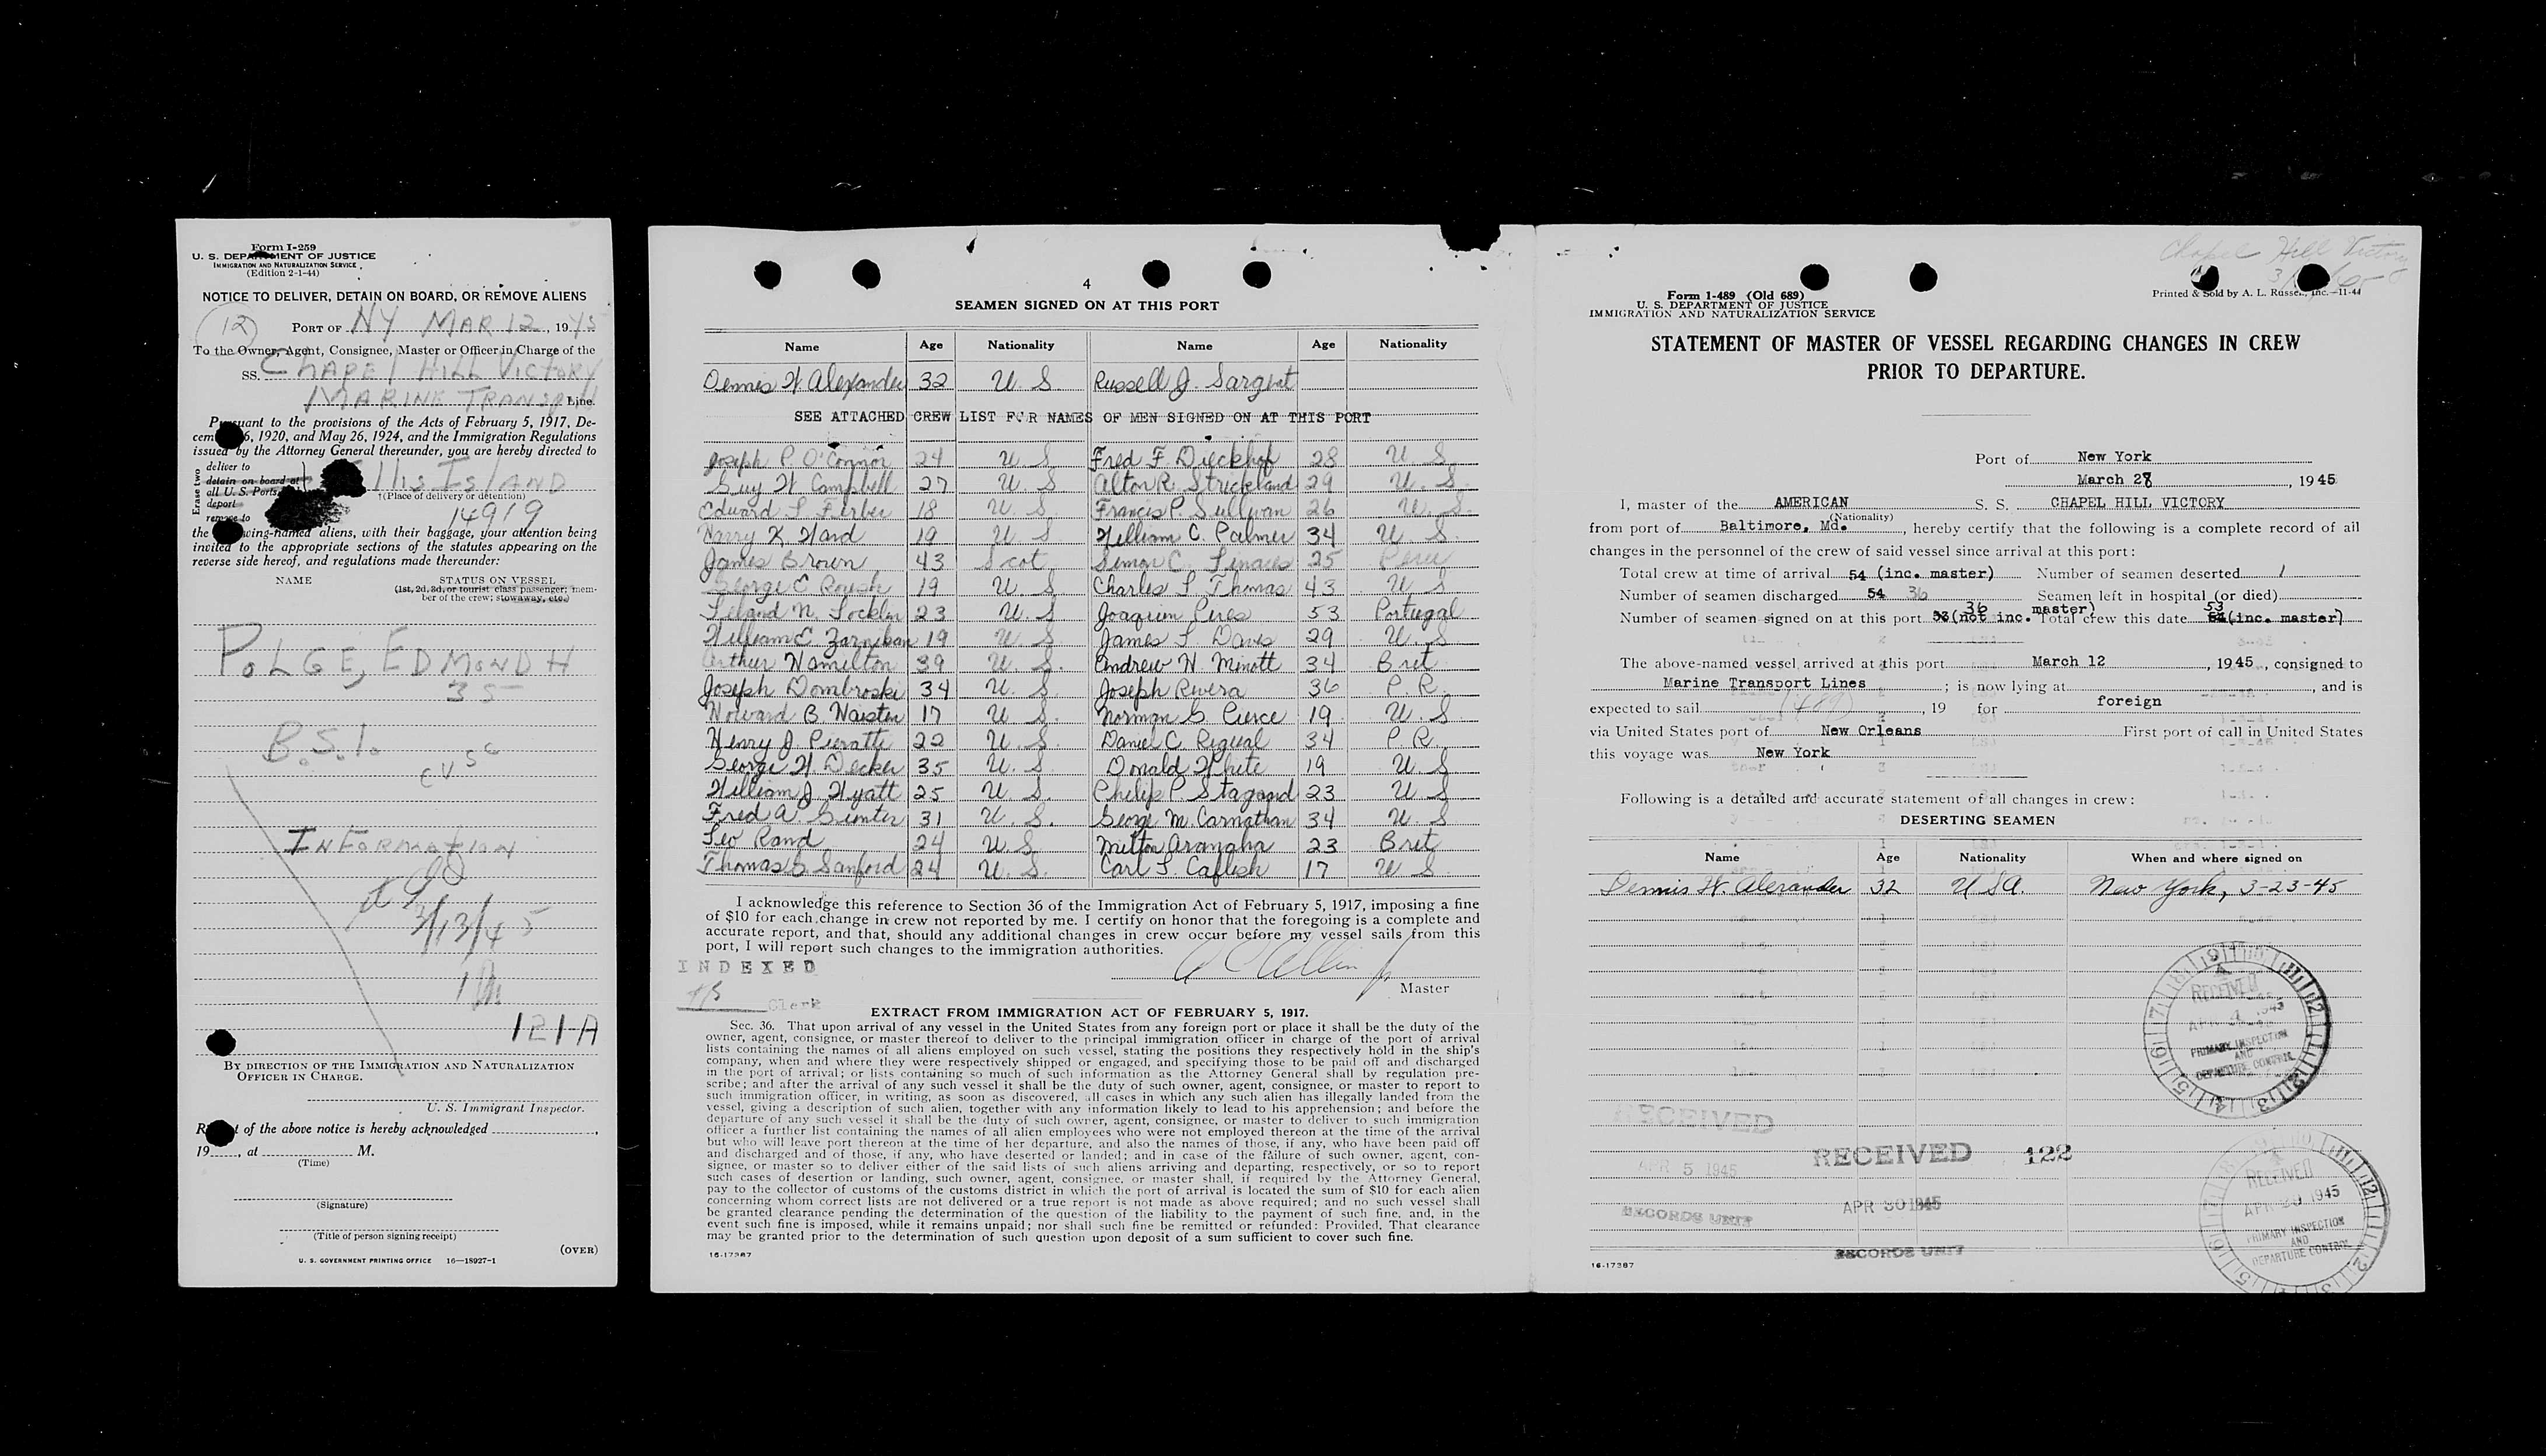 Form I-259
U. S. DEPARTMENT OF JUSTICE
IMMIGRATION AND NATURALIZATION SERVICE
(Edition 2-1-44)
NOTICE TO DELIVER, DETAIN ON BOARD, OR REMOVE ALIENS
(12) PORT OF NY MAR 12, 1945
To the Owner, Agent, Consignee, Master or Officer in Charge of the
SS. CHAPEL HILL VICTORY
MARINE TRANSPORT Line.
Pursuant to the provisions of the Acts of February 5, 1917, De-
cember 26, 1920, and May 26, 1924, and the Immigration Regulations
issued by the Attorney General thereunder, you are hereby directed to
Erase two
deliver to
detain on board at
all U. S. Ports
deport
remove to
Ellis ISLAND
†(Place of delivery or detention)
14919
the following-named aliens, with their baggage, your attention being
invited to the appropriate sections of the statutes appearing on the
reverse side hereof, and regulations made thereunder:
NAME STATUS ON VESSEL
(1st, 2d, 3d, or tourist class passenger; mem-
ber of the crew; stowaway, etc.)
POLGE, EDMOND H
35
B.S.I.
INFORMATION
3/13/45
121-A
BY DIRECTION OF THE IMMIGRATION AND NATURALIZATION
OFFICER IN CHARGE.
U. S. Immigrant Inspector.
Receipt of the above notice is hereby acknowledged
19____, at ____ M.
(Time)
(Signature)
(Title of person signing receipt)
(OVER)
U. S. GOVERNMENT PRINTING OFFICE 16—18927-1
4
SEAMEN SIGNED ON AT THIS PORT
Name Age Nationality Name Age Nationality
Dennis W. Alexander 32 U. S. Russell J. Sargent
SEE ATTACHED CREW LIST FOR NAMES OF MEN SIGNED ON AT THIS PORT
Joseph P. O'Connor 24 U S Fred F. Dieckhof 28 U. S.
Guy W. Campbell 27 U. S Alton R. Strickland 29 U. S.
Edward L Ferber 18 U S. Francis P. Sullivan 26 U. S.
Harry K. Ward 19 U S William C. Palmer 34 U S.
James Brown 43 Scot Simon C. Linares 25 Peru
George E Roush 19 U S Charles L Thomas 43 U S
Leland N. Lockler 23 U. S Joaquim Pires 53 Portugal
William E. 19 U S James L Davis 29 U. S
Arthur Hamilton 39 U S. Andrew W. Minott 34 Brit
Joseph Dombroski 34 U. S. Joseph Rivera 36 P. R.
Howard B. 17 U S. Norman G. Pierce 19 U. S
Henry J. 22 U. S. Daniel C. 34 P R.
George W. Decker 35 U. S. Donald White 19 U. S
William J. Hyatt 25 U S. Philip P. 23 U S
Fred A. Gunter 31 U. S. George M. Carnathan 34 U. S
Leo Rand 24 U. S Milton Aranaha 23 Brit
Thomas G. Sanford 24 U. S. Carl L. Caflish 17 U S.
I acknowledge this reference to Section 36 of the Immigration Act of February 5, 1917, imposing a fine
of $10 for each change in crew not reported by me. I certify on honor that the foregoing is a complete and
accurate report, and that, should any additional changes in crew occur before my vessel sails from this
port, I will report such changes to the immigration authorities.
INDEXED
Clerk
Master
EXTRACT FROM IMMIGRATION ACT OF FEBRUARY 5, 1917.
Sec. 36. That upon arrival of any vessel in the United States from any foreign port or place it shall be the duty of the
owner, agent, consignee, or master thereof to deliver to the principal immigration officer in charge of the port of arrival
lists containing the names of all aliens employed on such vessel, stating the positions they respectively hold in the ship's
company, when and where they were respectively shipped or engaged, and specifying those to be paid off and discharged
in the port of arrival; or lists containing so much of such information as the Attorney General shall by regulation pre-
scribe; and after the arrival of any such vessel it shall be the duty of such owner, agent, consignee, or master to report to
such immigration officer, in writing, as soon as discovered, all cases in which any such alien has illegally landed from the
vessel, giving a description of such alien, together with any information likely to lead to his apprehension; and before the
departure of any such vessel it shall be the duty of such owner, agent, consignee, or master to deliver to such immigration
officer a further list containing the names of all alien employees who were not employed thereon at the time of the arrival
but who will leave port thereon at the time of her departure, and also the names of those, if any, who have been paid off
and discharged and of those, if any, who have deserted or landed; and in case of the failure of such owner, agent, con-
signee, or master so to deliver either of the said lists of such aliens arriving and departing, respectively, or so to report
such cases of desertion or landing, such owner, agent, consignee, or master shall, if required by the Attorney General,
pay to the collector of customs of the customs district in which the port of arrival is located the sum of $10 for each alien
concerning whom correct lists are not delivered or a true report is not made as above required; and no such vessel shall
be granted clearance pending the determination of the question of the liability to the payment of such fine, and, in the
event such fine is imposed, while it remains unpaid; nor shall such fine be remitted or refunded: Provided, That clearance
may be granted prior to the determination of such question upon deposit of a sum sufficient to cover such fine.
16-17387
Chapel Hill Victory
Form I-489 (Old 689)
U. S. DEPARTMENT OF JUSTICE
IMMIGRATION AND NATURALIZATION SERVICE
Printed & Sold by A. L. Russell, Inc.—11-44
STATEMENT OF MASTER OF VESSEL REGARDING CHANGES IN CREW
PRIOR TO DEPARTURE.
Port of New York
March 28, 1945
I, master of the AMERICAN S. S. CHAPEL HILL VICTORY
(Nationality)
from port of Baltimore, Md., hereby certify that the following is a complete record of all
changes in the personnel of the crew of said vessel since arrival at this port:
Total crew at time of arrival 54 (inc. master) Number of seamen deserted 1
Number of seamen discharged 54 36 Seamen left in hospital (or died)
Number of seamen signed on at this port 36 (not inc. master) Total crew this date 53 (inc. master)
The above-named vessel arrived at this port March 12, 1945, consigned to
Marine Transport Lines; is now lying at, and is
expected to sail (489), 19 for foreign
via United States port of New Orleans First port of call in United States
this voyage was New York
Following is a detailed and accurate statement of all changes in crew:
DESERTING SEAMEN
Name Age Nationality When and where signed on
Dennis W. Alexander 32 U S A. New York, 3-23-45
RECEIVED
PRIMARY INSPECTION
AND
DEPARTURE CONTROL
RECEIVED
APR 5 1945
RECORDS UNIT
RECEIVED 122
APR 30 1945
RECORDS UNIT
RECEIVED
1945
PRIMARY INSPECTION
AND
DEPARTURE CONTROL
16-17387